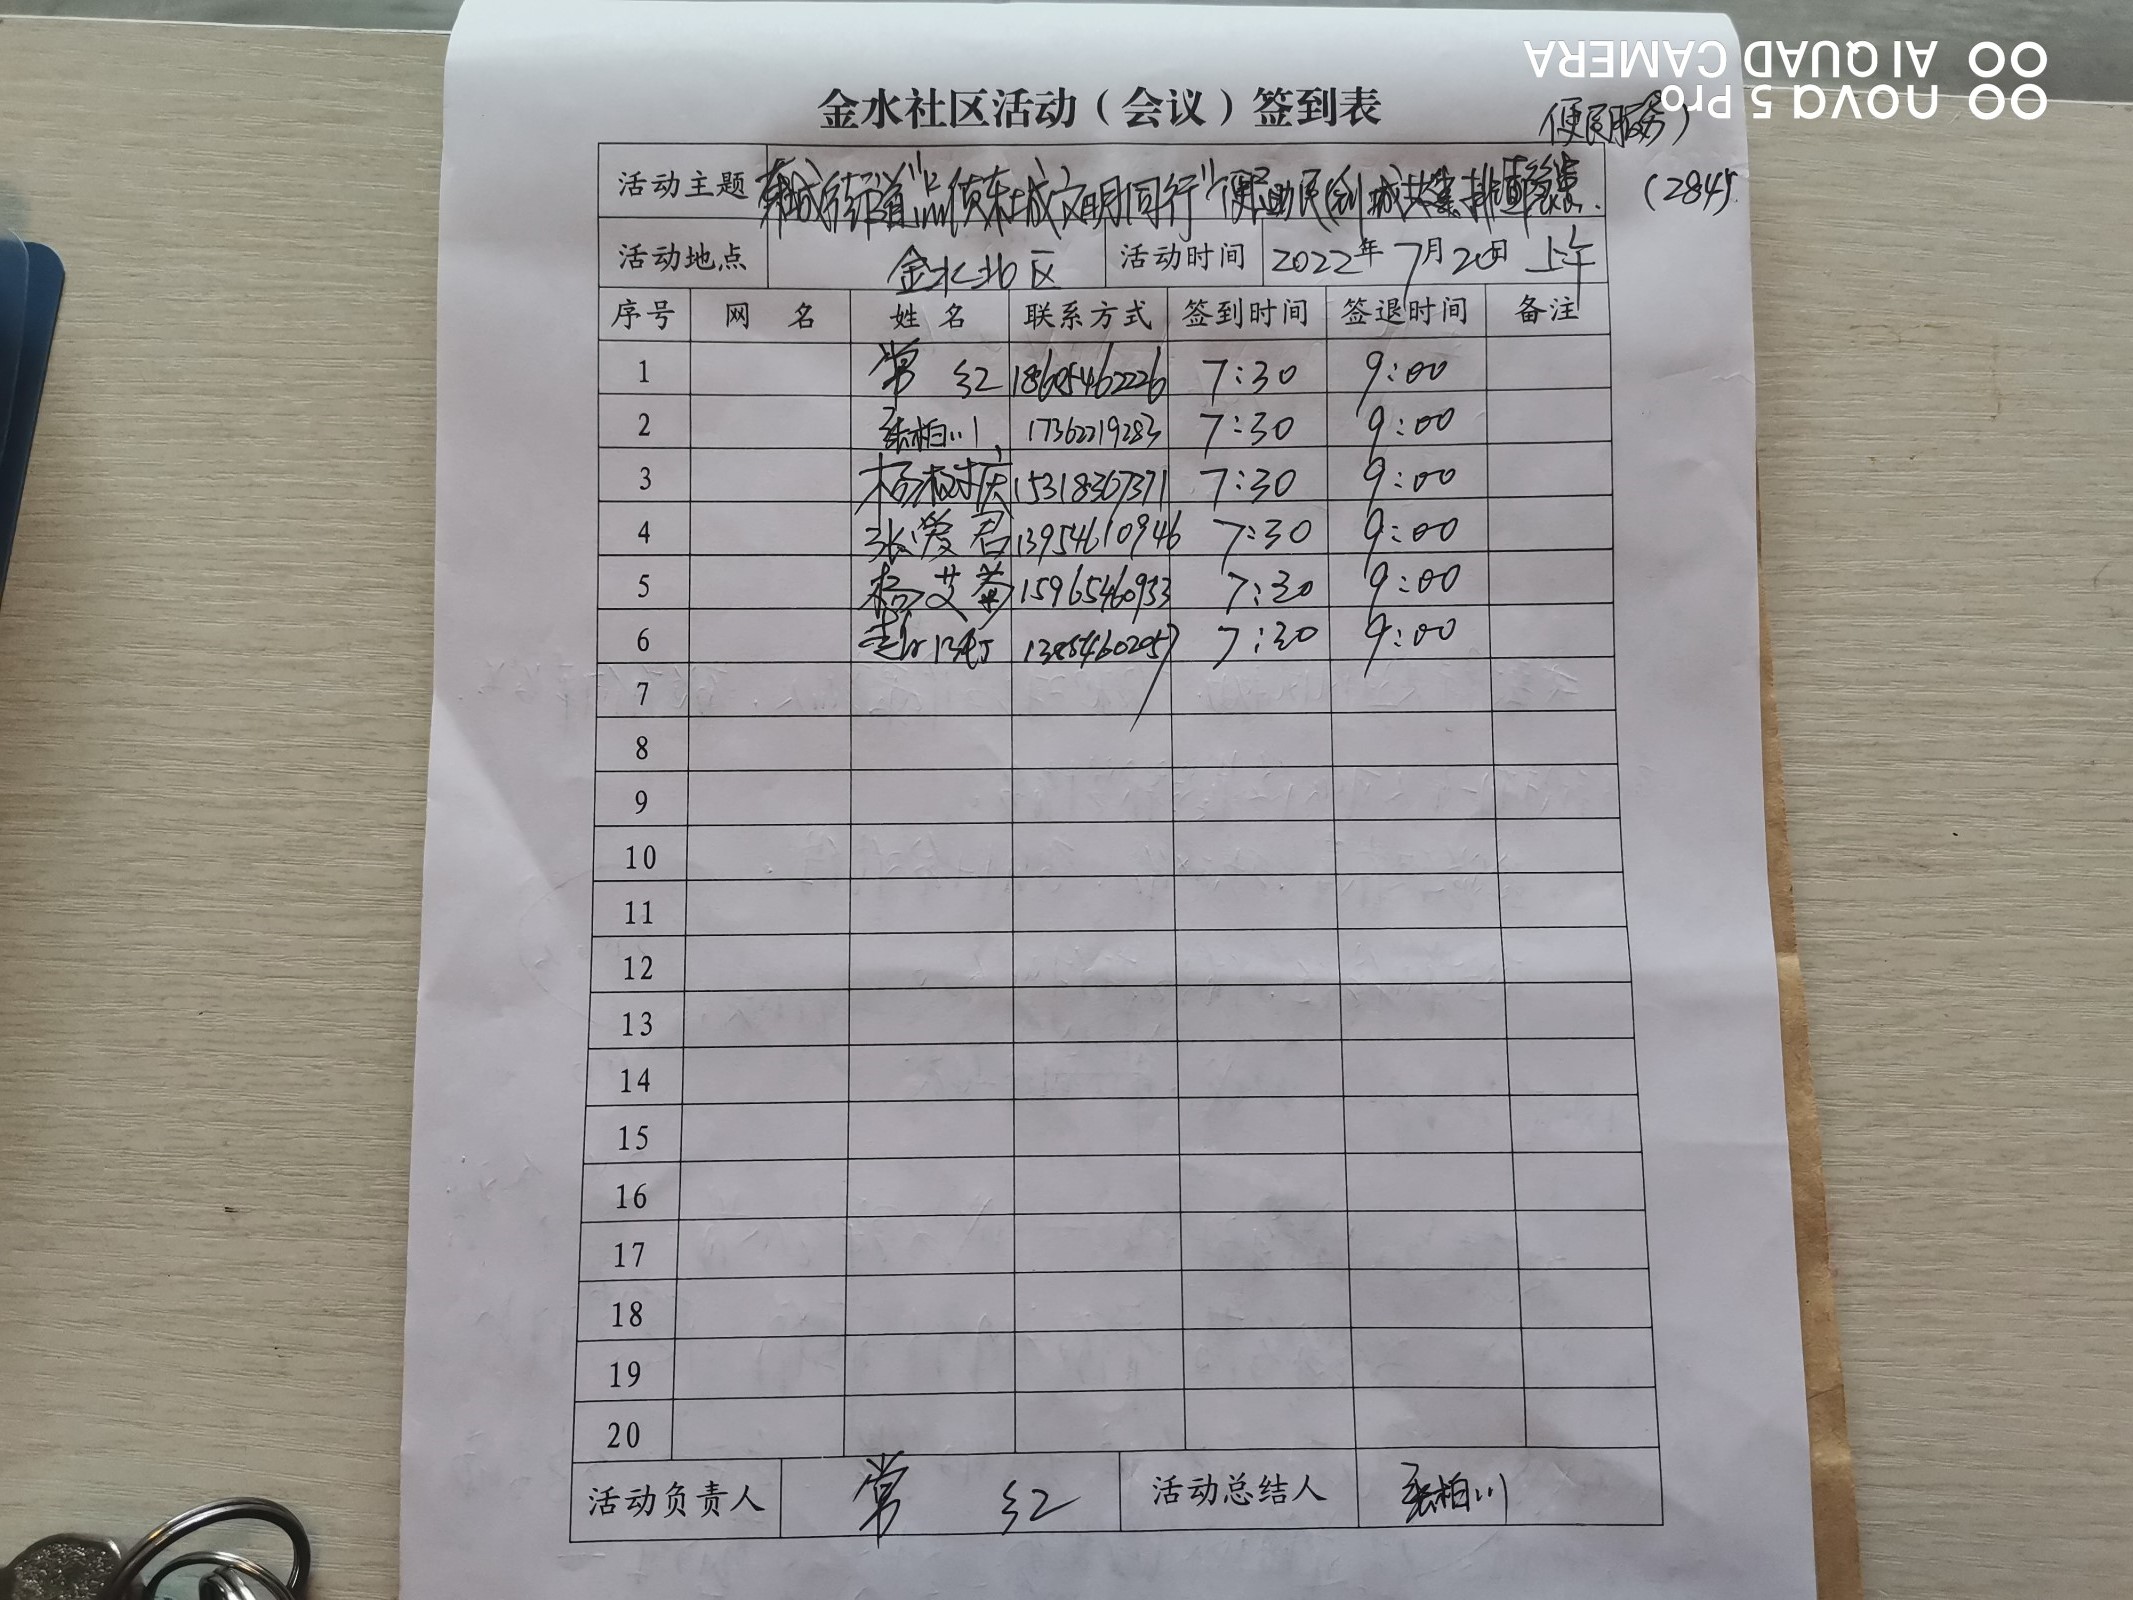 nova 5 Pro
AI QUAD CAMERA
金水社区活动（会议）签到表
便民服务）
活动主题 东城街道"点侦东城文明同行" 便民助民 创城共建 （284）
活动地点 金水北区 活动时间 2022年7月20日 上午
序号 网 名 姓 名 联系方式 签到时间 签退时间 备注
1 常 红 18605462226 7:30 9:00
2 张柏川 17362219283 7:30 9:00
3 杨树庆 15318367371 7:30 9:00
4 张爱君 13954610946 7:30 9:00
5 杨艾菊 15965460933 7:30 9:00
6 7:30 9:00
7
8
9
10
11
12
13
14
15
16
17
18
19
20
活动负责人 常 红 活动总结人 张柏川